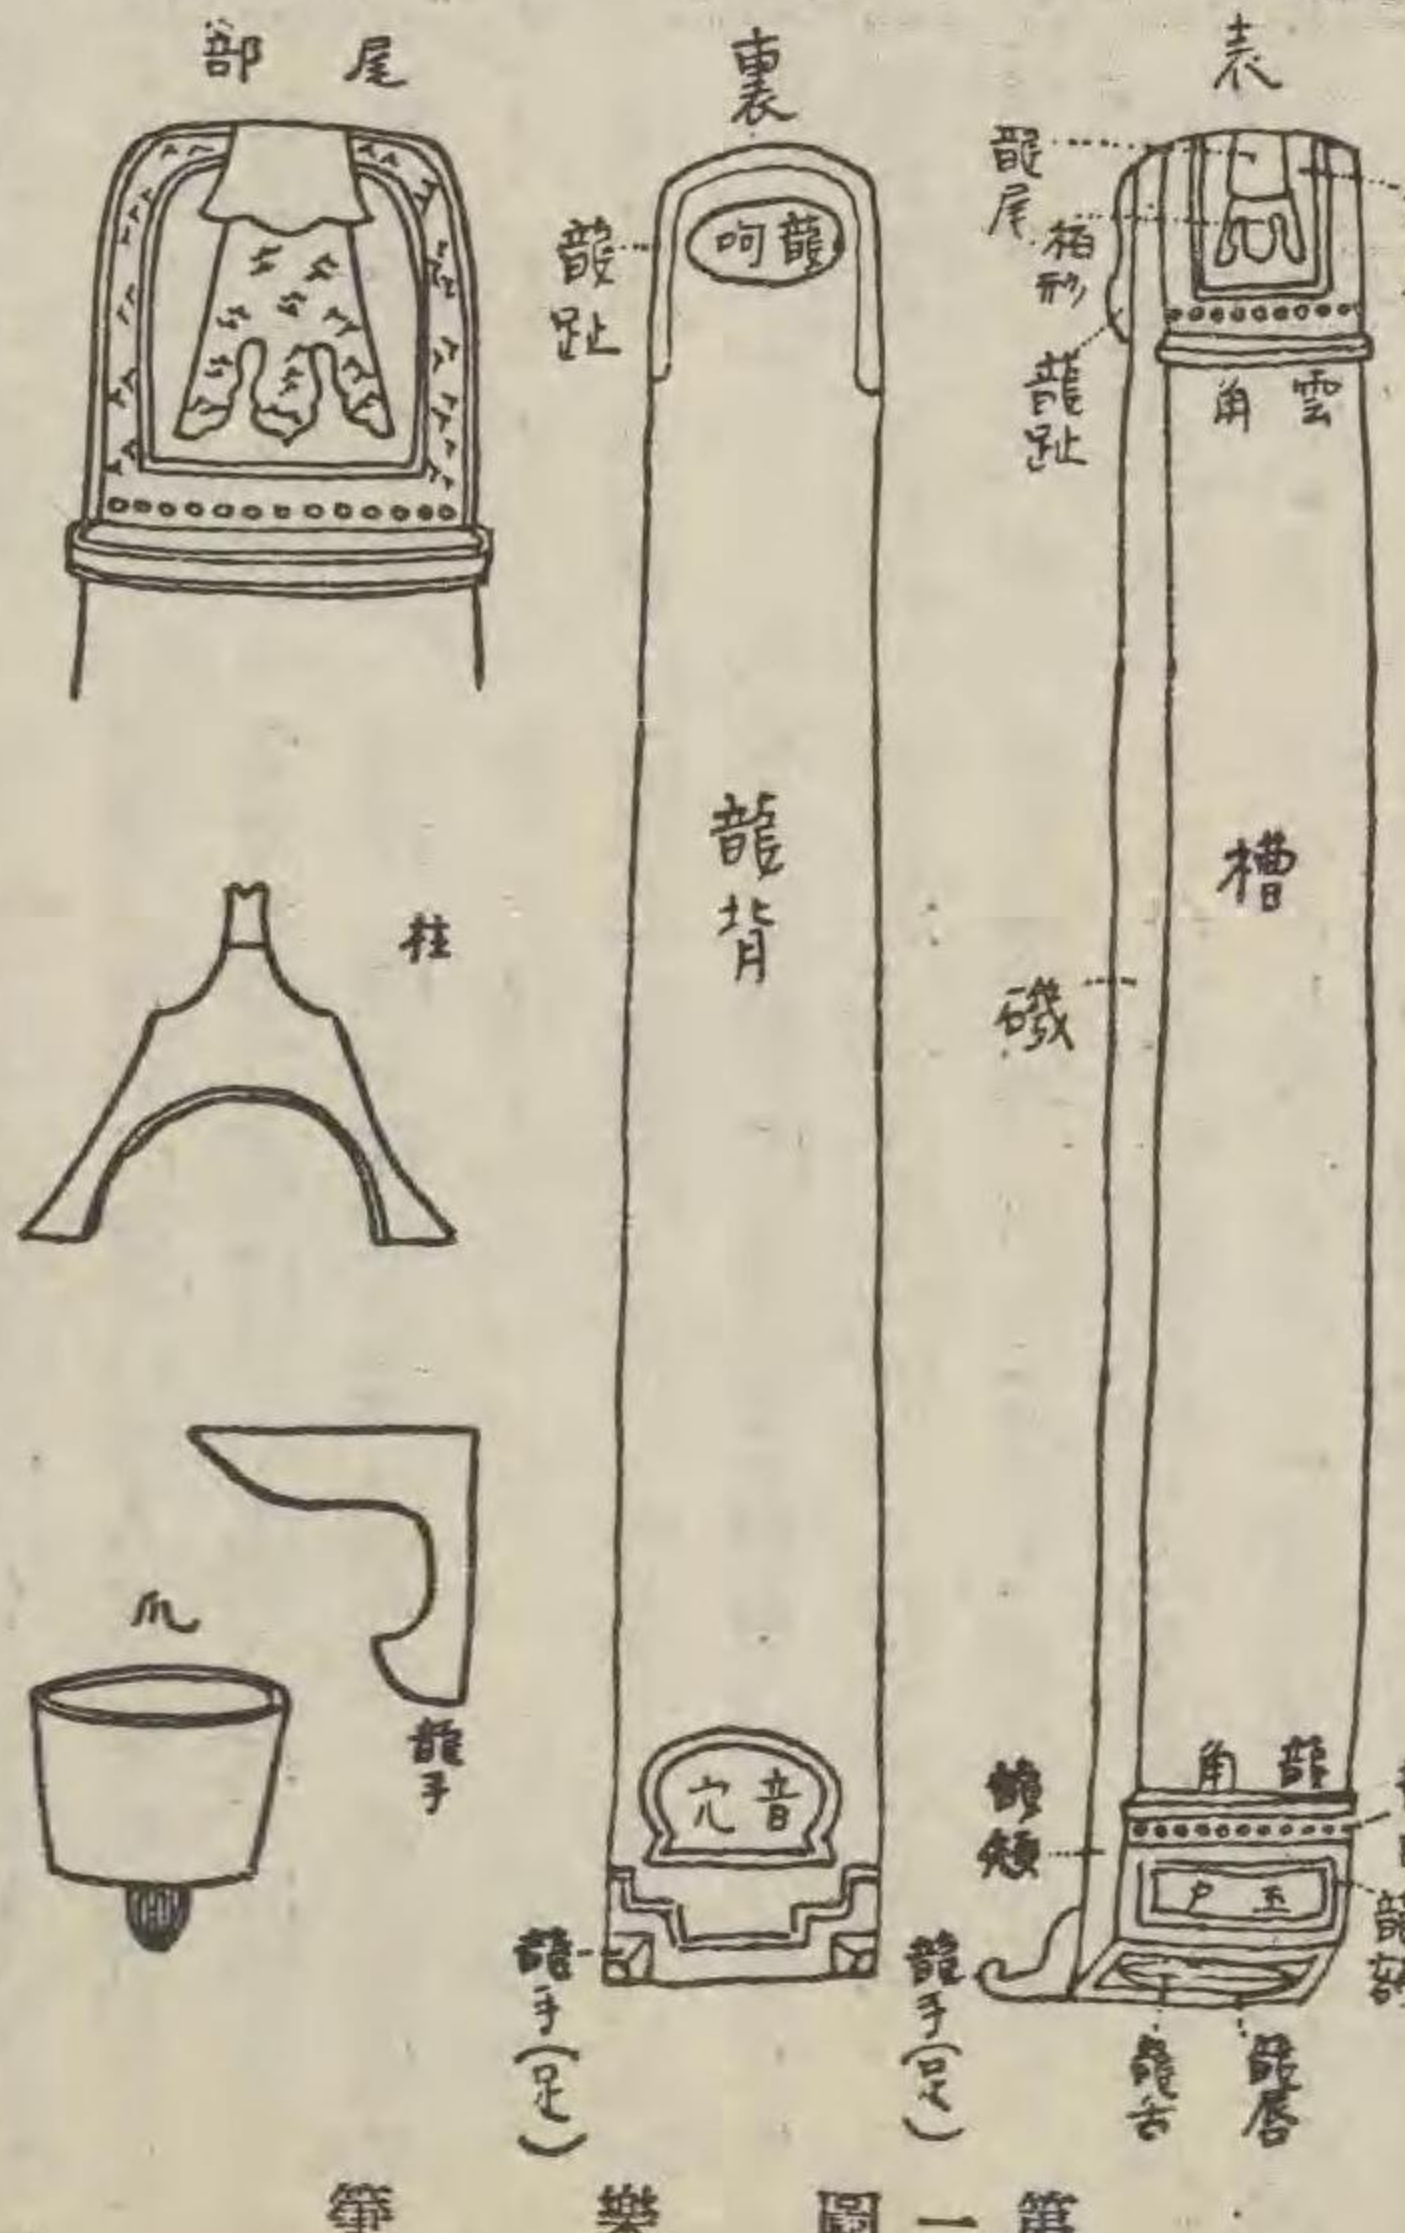 表
龍尾
栢形
龍趾
雲角
槽
磯
龍角
龍頰
玉戸
龍額
龍手(足)
龍舌
龍唇
裏
龍趾
龍呵
龍背
音穴
龍手(足)
尾部
柱
龍手
爪
第一圖 樂箏